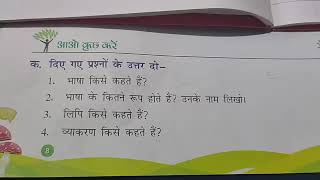 आओ कुछ करें
क. दिए गए प्रश्नों के उत्तर दो–
1. भाषा किसे कहते हैं?
2. भाषा के कितने रूप होते हैं? उनके नाम लिखो।
3. लिपि किसे कहते हैं?
4. व्याकरण किसे कहते हैं?
8